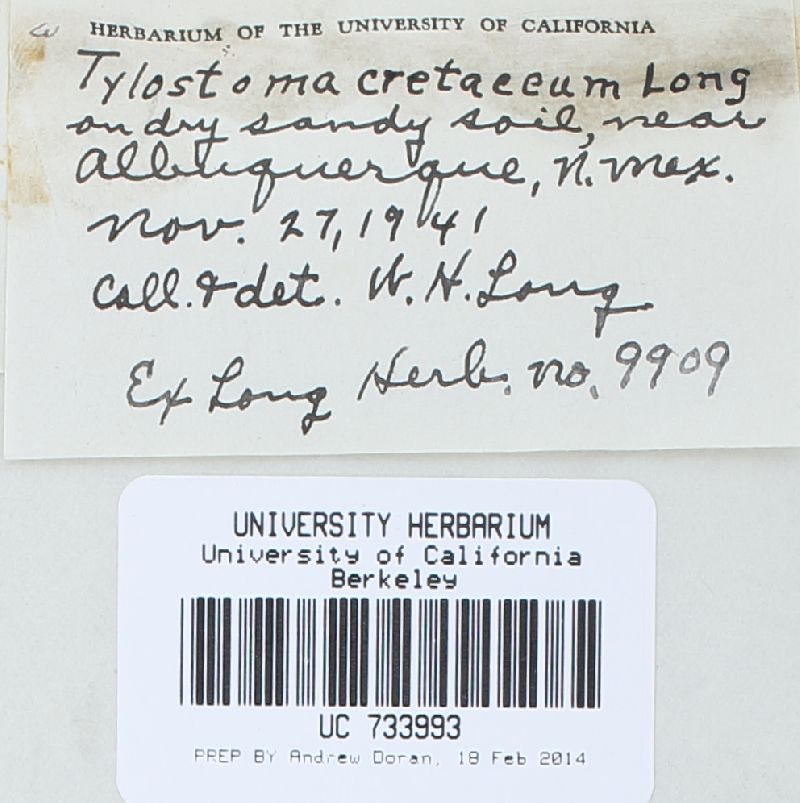 HERBARIUM OF THE UNIVERSITY OF CALIFORNIA
Tylostoma cretaceum Long
on dry sandy soil, near
Albuquerque, N. Mex.
Nov. 27, 1941
Coll. & det. W. H. Long
Ex Long Herb. no. 9909
UNIVERSITY HERBARIUM
University of California
Berkeley
UC 733993
PREP BY Andrew Doran, 18 Feb 2014